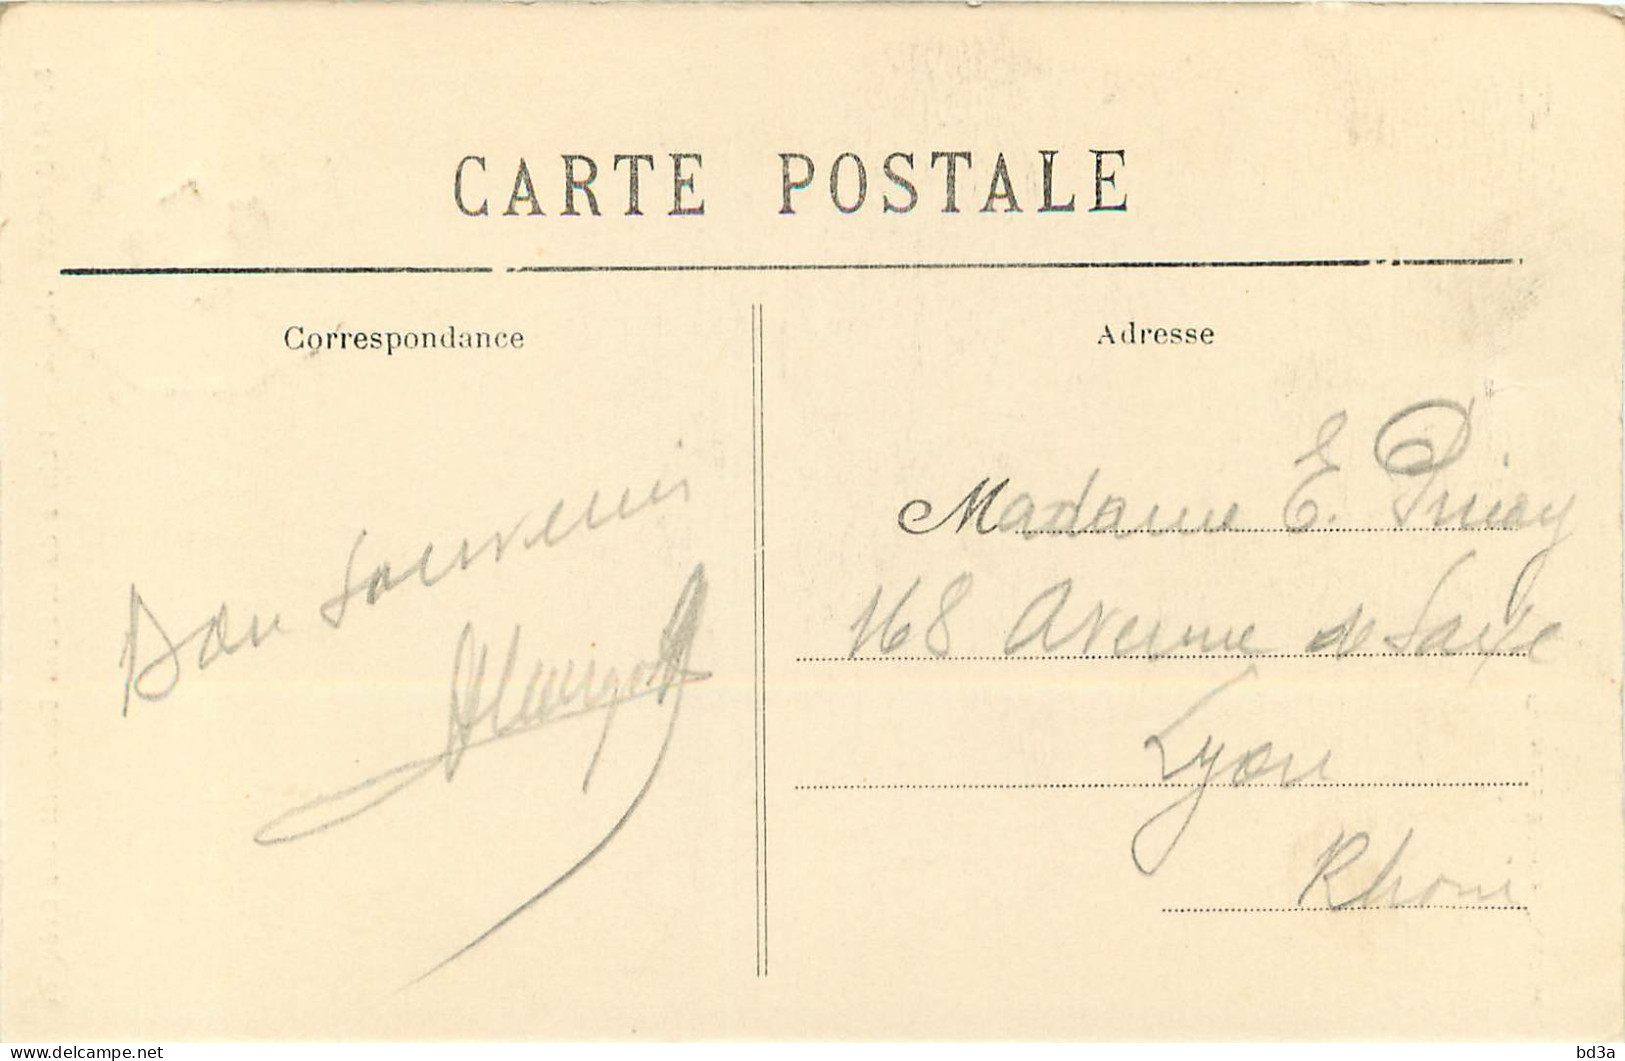 CARTE POSTALE
Correspondance
Bon souvenir
Adresse
Madame E.
168 Avenue de Saxe
Lyon
Rhone
delcampe.net
bd3a